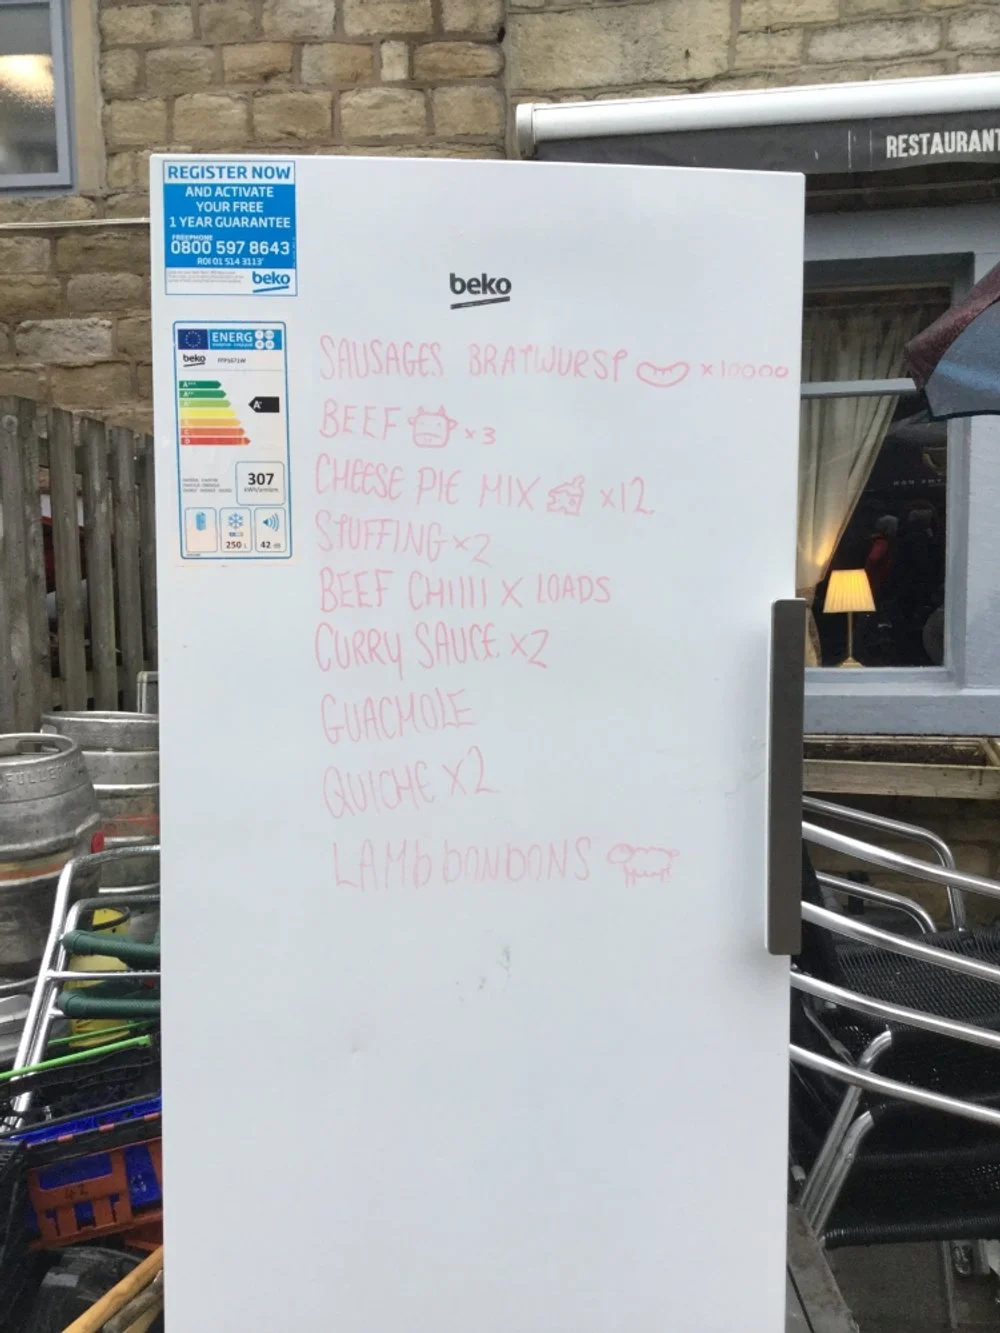 RESTAURANT
REGISTER NOW
AND ACTIVATE
YOUR FREE
1 YEAR GUARANTEE
FREEPHONE
0800 597 8643
ROI 01 514 3113
beko
beko
ENERG
beko
A+++
A++
A+
307
250 L
42 dB
SAUSAGES BRATWURST x10000
BEEF x3
CHEESE PIE MIX x12
STUFFING x2
BEEF CHIllI X LOADS
CURRY SAUCE x2
GUACMOLE
QUICHE X2
LAMb bONbONS
FULLER